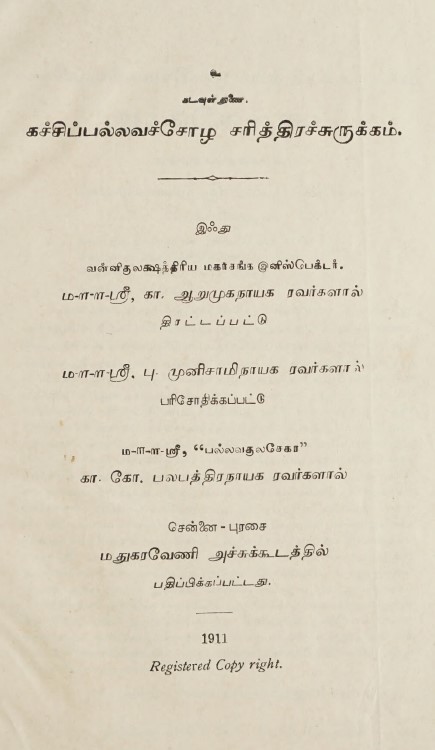 உ
கடவுள் துணை.
கச்சிப்பல்லவச்சோழ சரித்திரச்சுருக்கம்.
இஃது
வன்னிகுலக்ஷத்திரிய மகாசங்க இனிஸ்பெக்டர்.
ம-ள-ள-ஸ்ரீ, கா. ஆறுமுகநாயக ரவர்களால்
திரட்டப்பட்டு
ம-ள-ள-ஸ்ரீ. பு. முனிசாமிநாயக ரவர்களால்
பரிசோதிக்கப்பட்டு
ம-ள-ள-ஸ்ரீ, “பல்லவகுலசேகர”
கா. கோ. பலபத்திரநாயக ரவர்களால்
சென்னை - புரசை
மதுகரவேணி அச்சுக்கூடத்தில்
பதிப்பிக்கப்பட்டது.
1911
Registered Copy right.